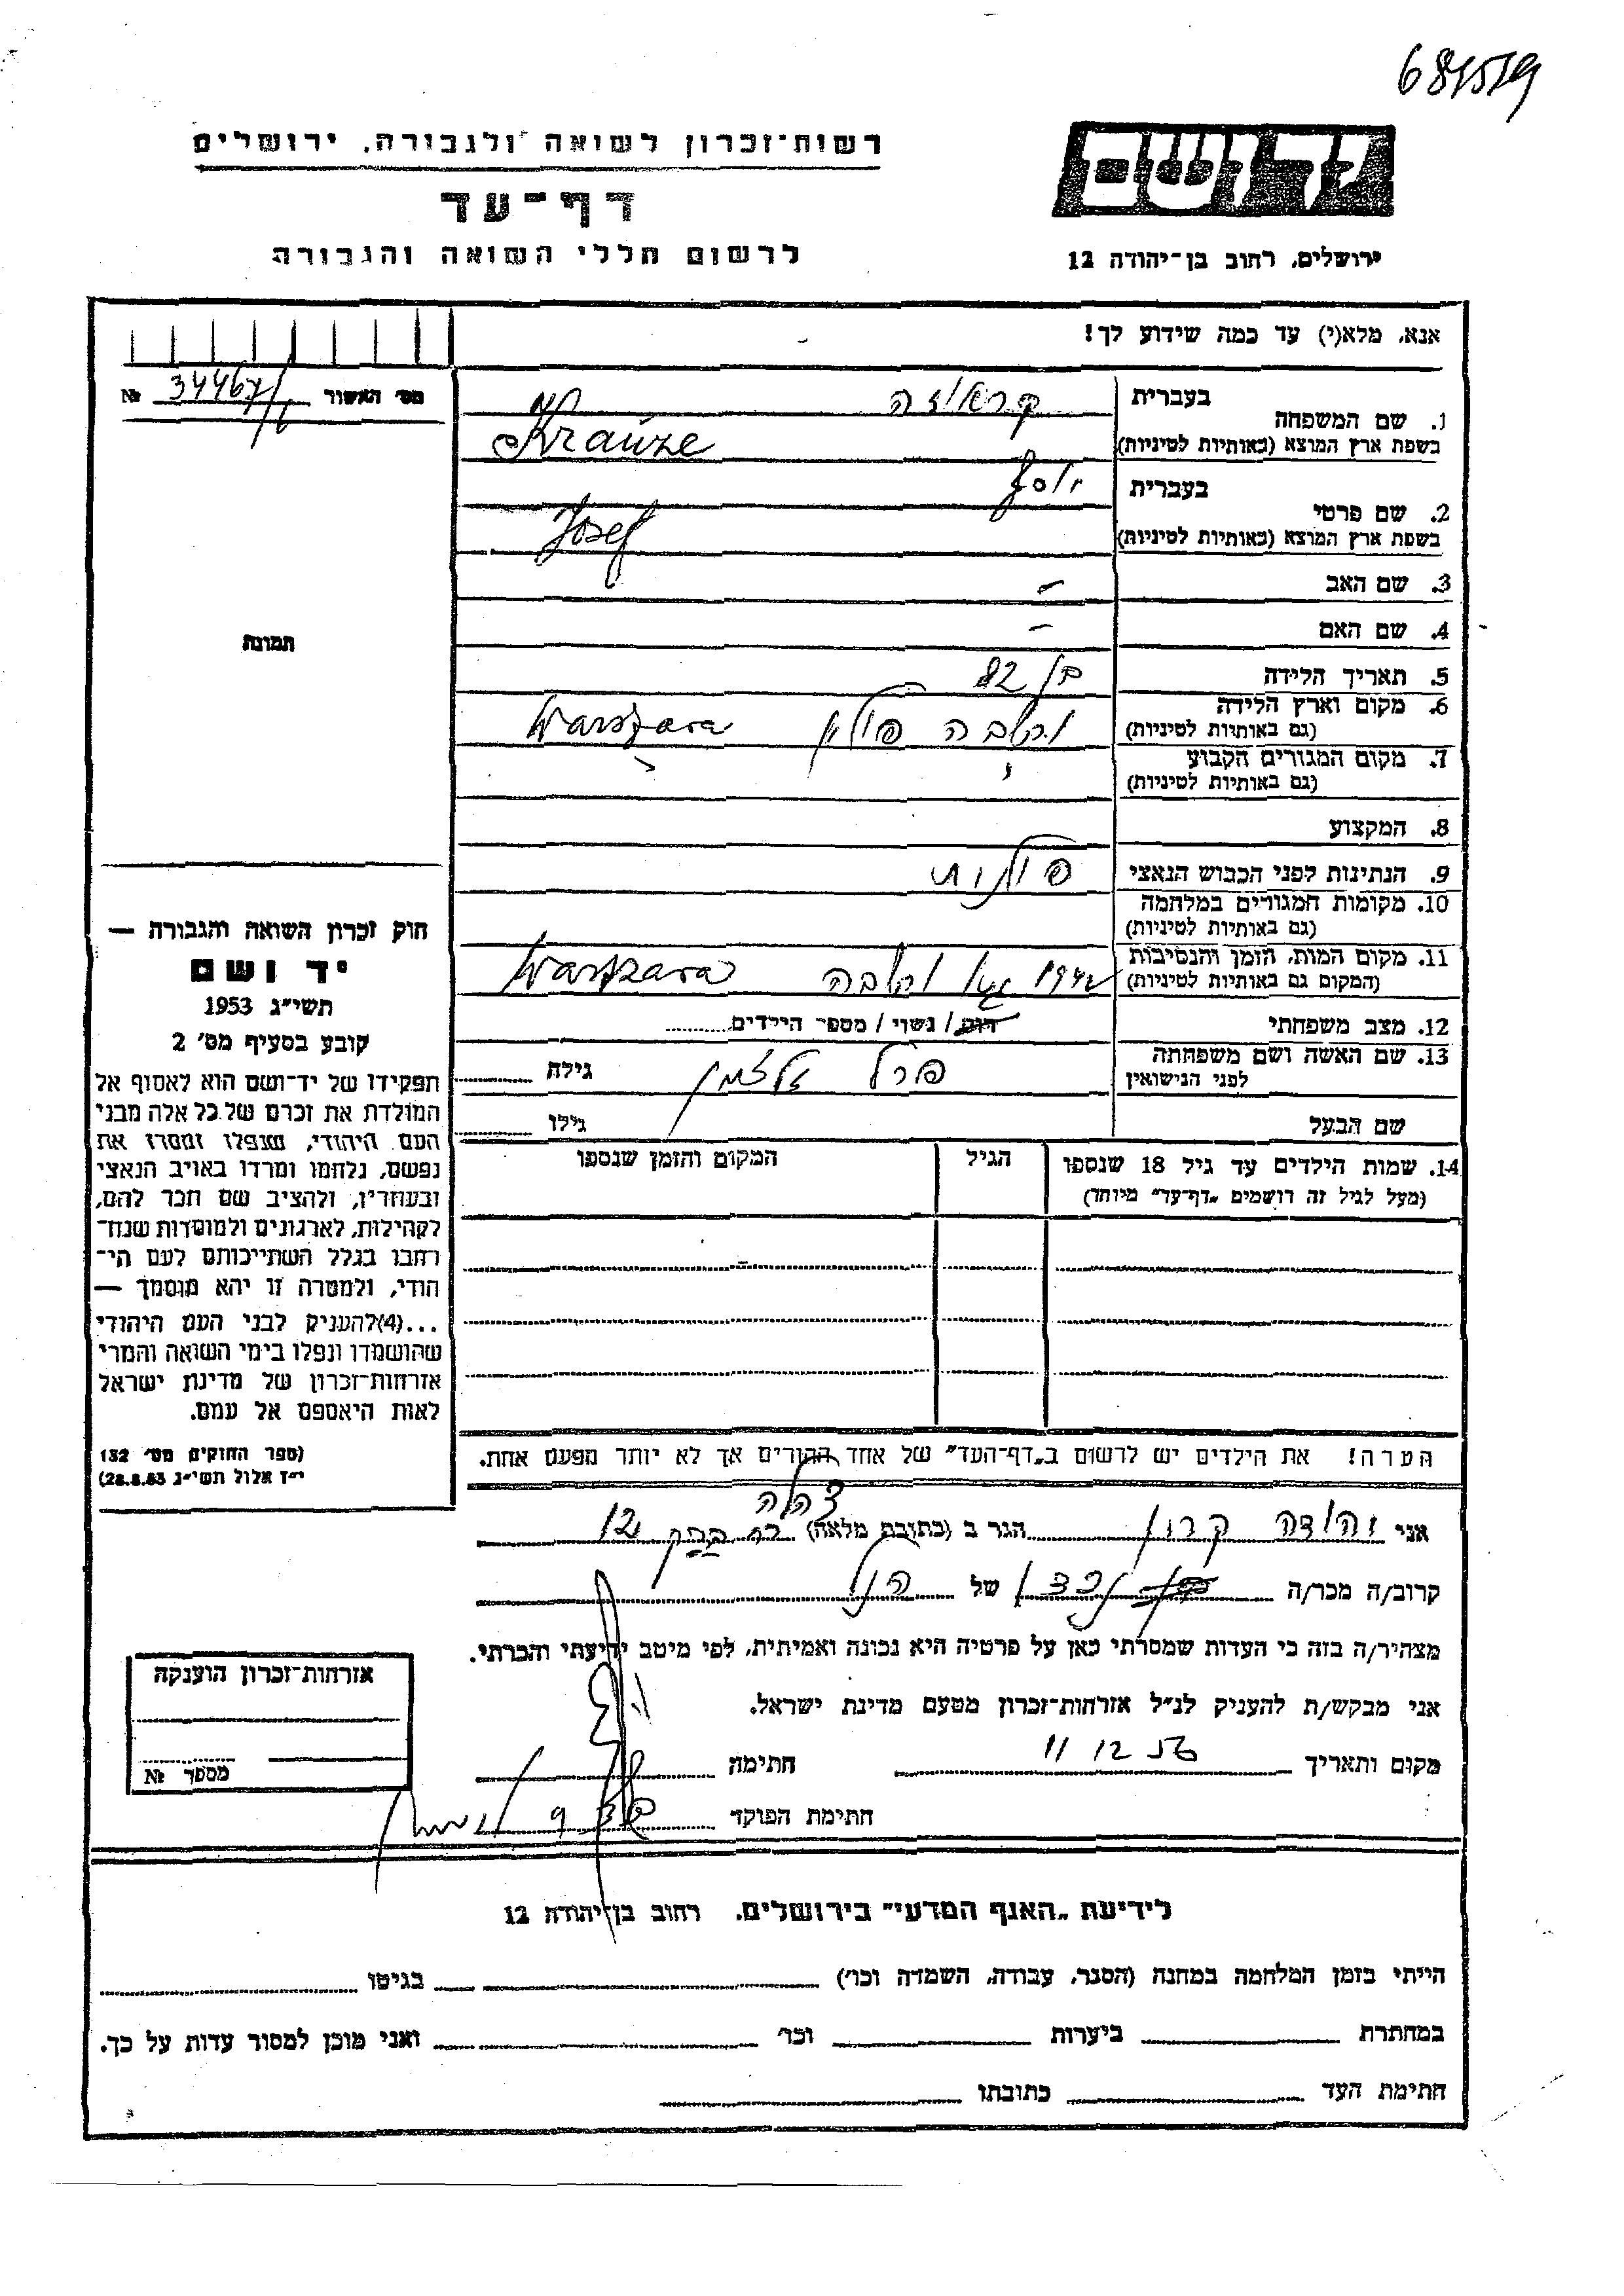 681519
רשות-זכרון לשואה ולגבורה, ירושלים
דף-עד
לרשום חללי השואה והגבורה
יד ושם
ירושלים, רחוב בן-יהודה 12
אנא, מלא(י) עד כמה שידוע לך!
מס׳ האשור 34467 №
1. שם המשפחה
בעברית קראוזה
בשפת ארץ המוצא (באותיות לטיניות) Krauze
2. שם פרטי
בעברית יוסף
בשפת ארץ המוצא (באותיות לטיניות) Josef
3. שם האב –
4. שם האם –
5. תאריך הלידה בן 82
6. מקום וארץ הלידה
(גם באותיות לטיניות) ורשבה פולין Warszawa
7. מקום המגורים הקבוע
(גם באותיות לטיניות) "
8. המקצוע
9. הנתינות לפני הכבוש הנאצי פולנית
10. מקומות המגורים במלחמה
(גם באותיות לטיניות)
11. מקום המות, הזמן והנסיבות
(המקום גם באותיות לטיניות) 1942 גטו ורשבה Warszawa
12. מצב משפחתי רוק / נשוי / מספר הילדים
13. שם האשה ושם משפחתה
לפני הנישואין פרל זלצמן גילה
שם הבעל גילו
14. שמות הילדים עד גיל 18 שנספו
(מעל לגיל זה רושמים „דף-עד" מיוחד)
הגיל
המקום והזמן שנספו
תמונה
חוק זכרון השואה והגבורה —
יד ושם
תשי"ג 1953
קובע בסעיף מס׳ 2
תפקידו של יד-ושם הוא לאסוף אל
המולדת את זכרם של כל אלה מבני
העם היהודי, שנפלו ומסרו את
נפשם, נלחמו ומרדו באויב הנאצי
ובעוזריו, ולהציב שם וזכר להם,
לקהילות, לארגונים ולמוסדות שנח-
רבו בגלל השתייכותם לעם הי-
הודי, ולמטרה זו יהא מוסמך —
...(4)להעניק לבני העם היהודי
שהושמדו ונפלו בימי השואה והמרי
אזרחות-זכרון של מדינת ישראל
לאות היאספם אל עמם.
(ספר החוקים מס׳ 132
י"ז אלול תשי"ג 28.8.53)
הערה! את הילדים יש לרשום ב„דף-העד" של אחד ההורים אך לא יותר מפעם אחת.
אני יהודה קרון הגר ב (כתובת מלאה) צהלה 12
קרוב/ה מכר/ה נכד של הנ"ל
מצהיר/ה בזה כי העדות שמסרתי כאן על פרטיה היא נכונה ואמיתית, לפי מיטב ידיעתי והכרתי.
אני מבקש/ת להעניק לנ"ל אזרחות-זכרון מטעם מדינת ישראל.
מקום ותאריך 11 12 56 חתימה
חתימת הפוקד
אזרחות-זכרון הוענקה
מספר №
לידיעת „האגף המדעי" בירושלים, רחוב בן-יהודה 12
הייתי בזמן המלחמה במחנה (הסגר, עבודה, השמדה וכו׳) בגיטו
במחתרת ביערות וכו׳ ואני מוכן למסור עדות על כך.
חתימת העד כתובתו